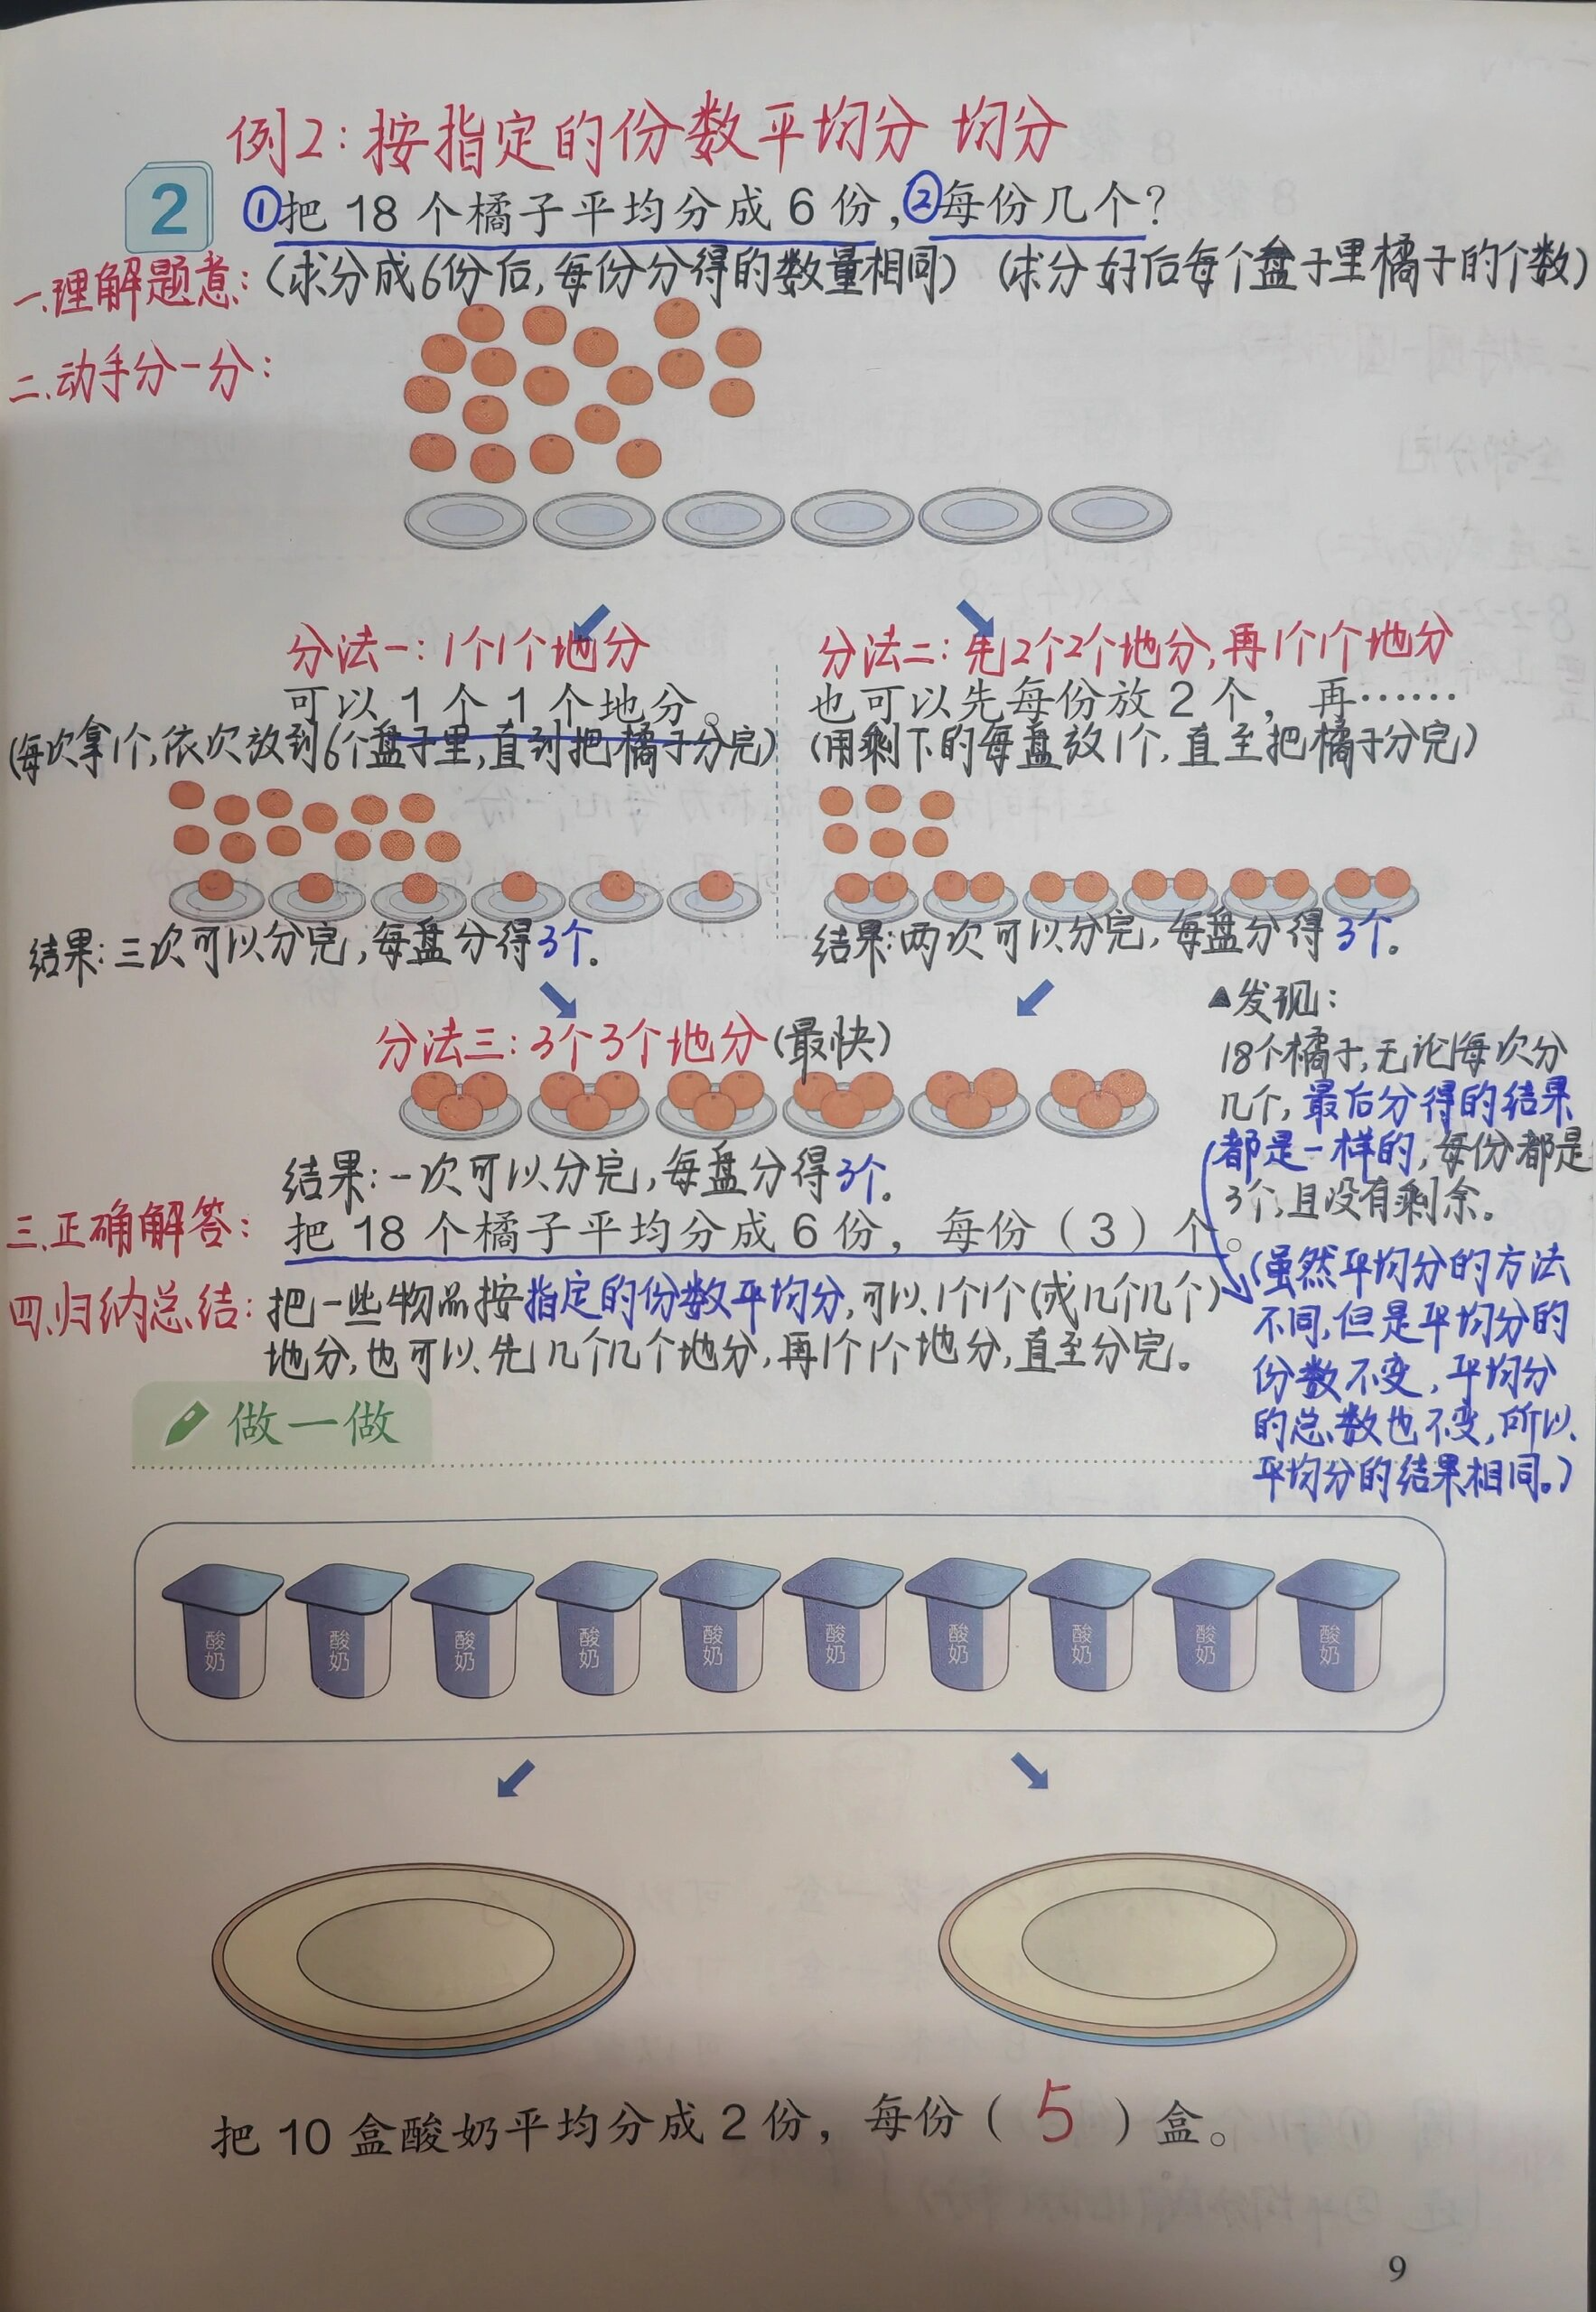 例2:按指定的份数平均分 均分
2
①把 18 个橘子平均分成 6 份,②每份几个?
一.理解题意:(求分成6份后,每份分得的数量相同) (求分好后每个盘子里橘子的个数)
二.动手分一分:
分法一:1个1个地分
可以 1 个 1 个地分。
(每次拿1个,依次放到6个盘子里,直到把橘子分完)
结果:三次可以分完,每盘分得3个.
分法二:先2个2个地分,再1个1个地分
也可以先每份放 2 个,再……
(用剩下的每盘放1个,直至把橘子分完)
结果:两次可以分完,每盘分得3个.
分法三:3个3个地分(最快)
结果:一次可以分完,每盘分得3个.
▲发现:
18个橘子,无论每次分
几个,最后分得的结果
都是一样的,每份都是
3个,且没有剩余。
(虽然平均分的方法
不同,但是平均分的
份数不变,平均分
的总数也不变,所以
平均分的结果相同。)
三.正确解答:把 18 个橘子平均分成 6 份,每份(3)个。
四.归纳总结:把一些物品按指定的份数平均分,可以1个1个(或几个几个)
地分,也可以先几个几个地分,再1个1个地分,直至分完。
做一做
酸奶 酸奶 酸奶 酸奶 酸奶 酸奶 酸奶 酸奶 酸奶 酸奶
把 10 盒酸奶平均分成 2 份,每份( 5 )盒。
9